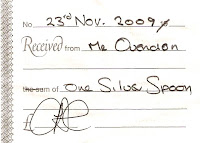 No 23rd Nov. 2009
Received from Me Ovendon
the sum of One Silver Spoon
£